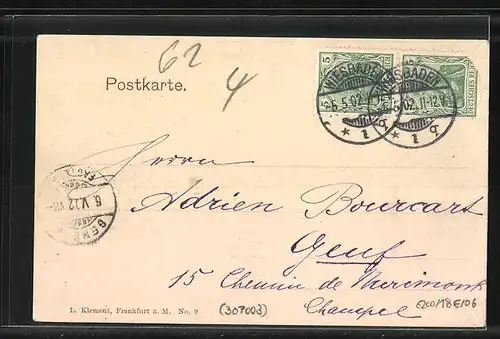 62
4
Postkarte.
5 5
DEUTSCHES REICH
WIESBADEN
5.5.02
* 1 g
WIESBADEN
5. 02. 11-12 V.
* 1 g
Herrn
Adrien Bourcart
Genf
15 Chemin de Miremont
Champel
6.V.02
L. Klement, Frankfurt a. M. No. 9
(307003)
6200/18E/06